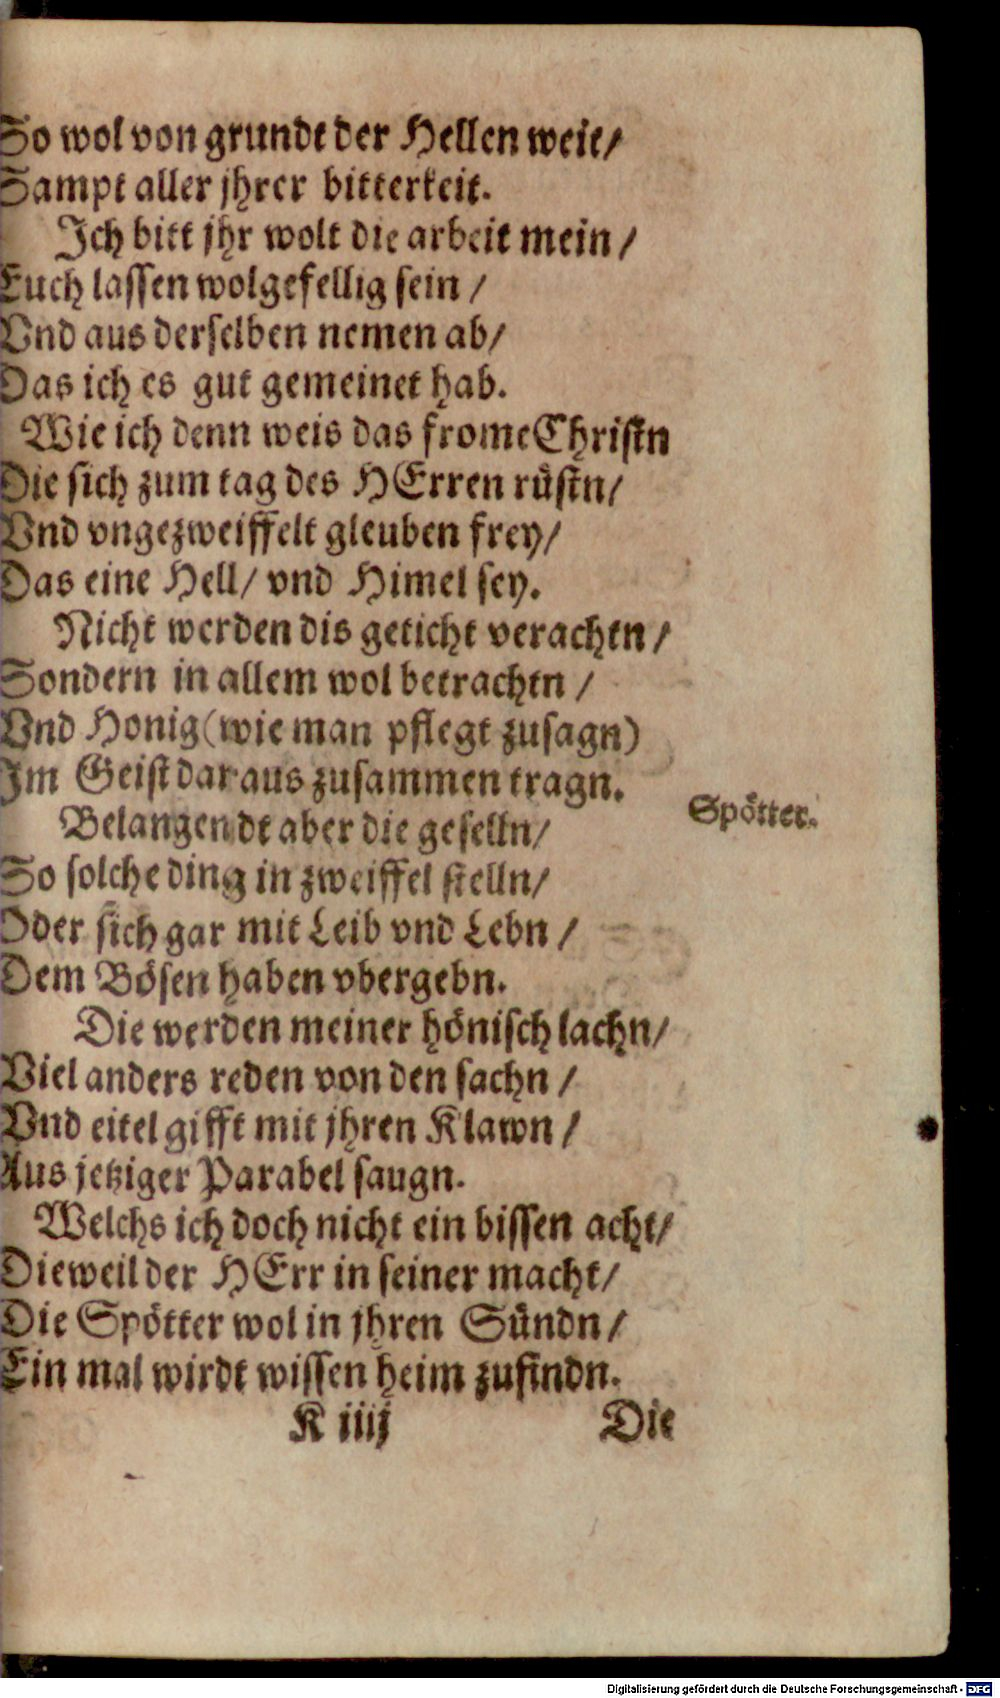 So wol von grundt der Hellen weit/
Sampt aller jhrer bitterkeit.
Ich bitt jhr wolt die arbeit mein/
Euch lassen wolgefellig sein/
Vnd aus derselben nemen ab/
Das ich es gut gemeinet hab.
Wie ich denn weis das frome Christn
Die sich zum tag des HErren rüstn/
Vnd vngezweiffelt gleuben frey/
Das eine Hell/ vnd Himel sey.
Nicht werden dis geticht verachtn/
Sondern in allem wol betrachtn/
Vnd Honig (wie man pflegt zusagn)
Im Geist daraus zusammen tragn.
Spötter.
Belangendt aber die geselln/
So solche ding in zweiffel stelln/
Oder sich gar mit Leib vnd Lebn/
Dem Bösen haben vbergebn.
Die werden meiner hönisch lachn/
Viel anders reden von den sachn/
Vnd eitel gifft mit jhren Klawn/
Aus jetziger Parabel saugn.
Welchs ich doch nicht ein bissen acht/
Dieweil der HErr in seiner macht/
Die Spötter wol in jhren Sündn/
Ein mal wirdt wissen heim zufindn.
K iiij Die
Digitalisierung gefördert durch die Deutsche Forschungsgemeinschaft - DFG